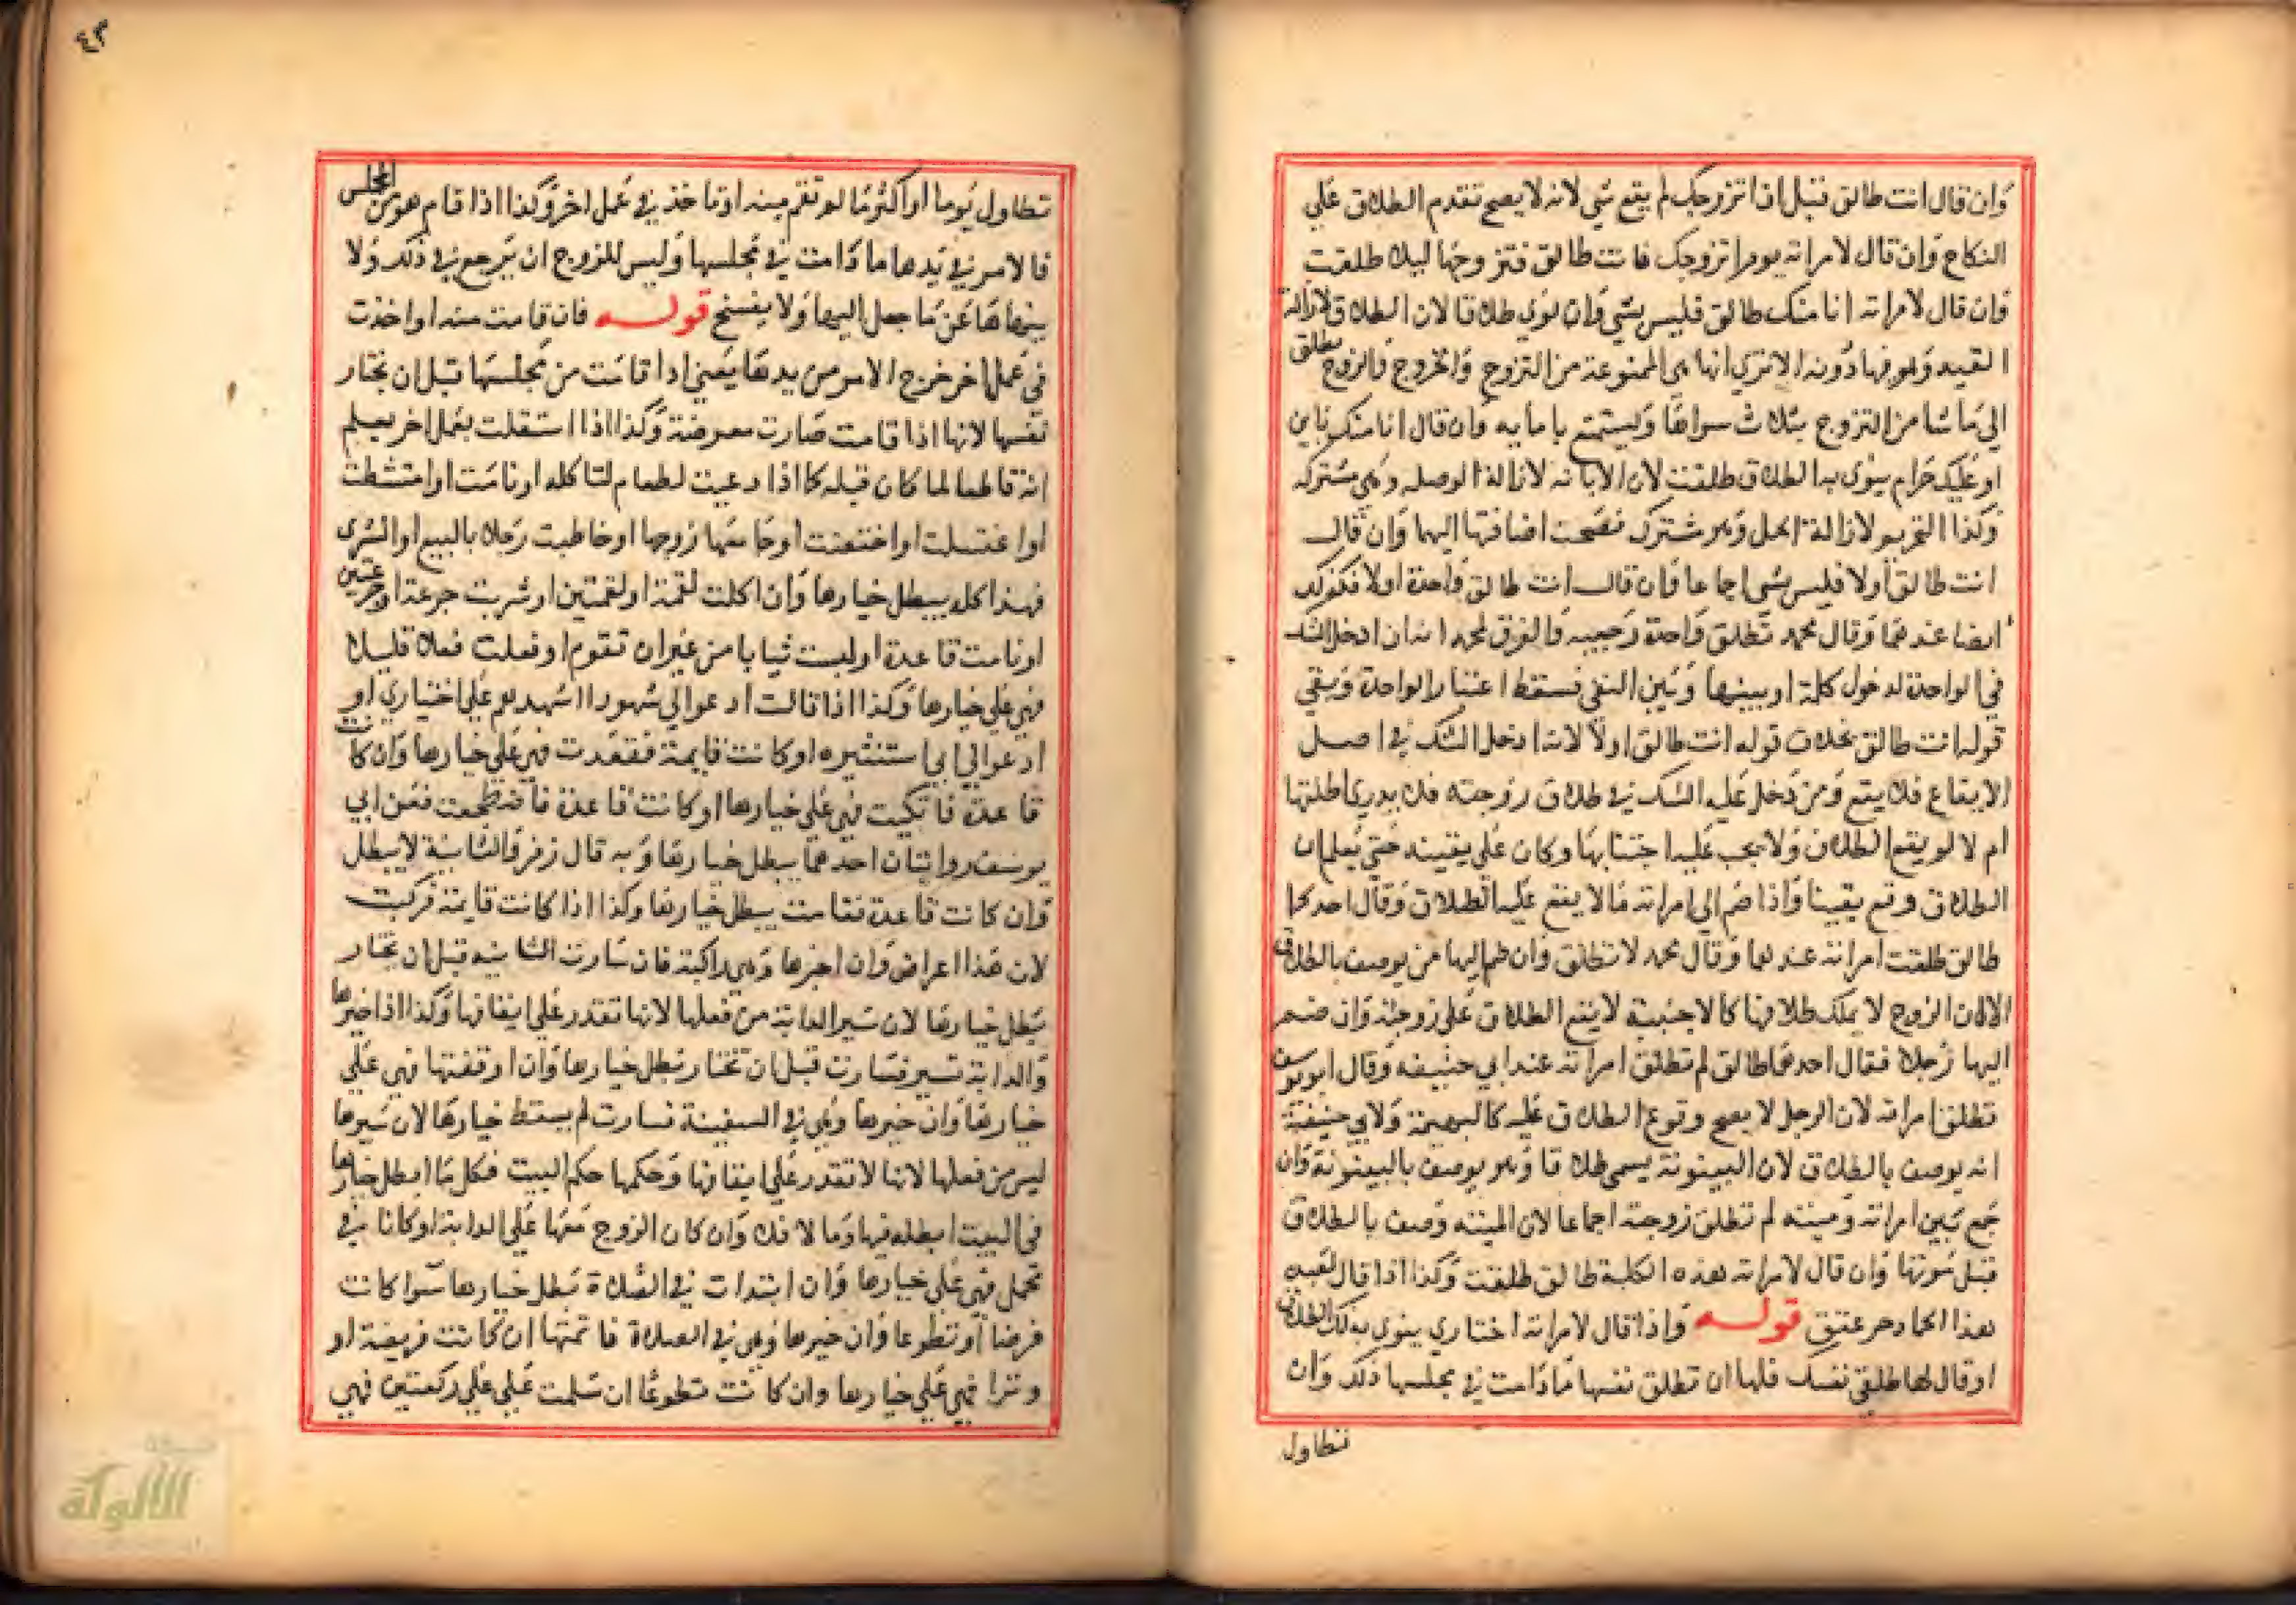 وان قال انت طالق قبل ان اتزوجك لم يقع شي لانه لا يصح تقدم الطلاق علي
النكاح وان قال لامراته يوم اتزوجك فانت طالق فتزوجها ليلا طلقت
وان قال لامراته انا منك طالق فليس بشي وان نوي طلاقا لان الطلاق لازالة
القيد وهو فيها دونه الا تري انها هي الممنوعة من التزوج والخروج والزوج مطلق
الي ما شا من التزوج بثلاث سواها ويستمتع بامايه وان قال انا منك باين
او عليك حرام ينوي به الطلاق طلقت لان الابانه لازالة الوصله وهي مشتركه
وكذا التحريم لازالة الحل وهو مشترك فصحت اضافتها اليها وان قال
انت طالق اولا فليس بشي اجماعا فان قال انت طالق واحدة اولا فكذلك
ايضا عندهما وقال محمد تطلق واحدة رجعيه والفرق لمحمد انه ان ادخل الشك
في الواحدة لدخول كلمة او بينها وبين النفي فسقط اعتبار الواحدة وبقي
قوله انت طالق بخلاف قوله انت طالق اولا لانه ادخل الشك في اصل
الايقاع فلا يقع ومن دخل عليه الشك في طلاق زوجته فلا يدري اطلقها
ام لا لم يقع الطلاق ولا يجب عليه اجتنابها وكان علي يقينه حتي يعلم ان
الطلاق وقع يقينا واذا ضم الي امراته ما لا يقع عليه الطلاق وقال احدكما
طالق طلقت امراته عندهما وقال محمد لا تطلق وان ضم اليها من يوصف بالطلاق
الا ان الزوج لا يملك طلاقها كالاجنبية لا يقع الطلاق علي زوجته وان ضم
اليها رجلا فقال احدكما طالق لم تطلق امراته عند ابي حنيفه وقال ابو يوسف
تطلق امراته لان الرجل لا يصح وقوع الطلاق عليه كالبهيمة ولابي حنيفة
انه يوصف بالطلاق لان البينونة يسمي طلاقا وهو يوصف بالبينونة وان
جمع بين امراته وميته لم تطلق زوجته اجماعا لان الميته وصف بالطلاق
قبل موتها وان قال لامراته هذه الكلبة طالق طلقت وكذا اذا قال لعبده
هذا الحمار حر عتق قوله واذا قال لامراته اختاري ينوي بذلك الطلاق
او قال لها طلقي نفسك فلها ان تطلق نفسها ما دامت في مجلسها ذلك وان
تطاول
٤٣
تطاول يوما او اكثر ما لم تقم منه او تاخذ في عمل اخر وكذا اذا قام هو من المجلس
فالامر في يدها ما دامت في مجلسها وليس للزوج ان يرجع في ذلك ولا
ينهاها عن ما جعل اليها ولا يفسخ قوله فان قامت منه او اخذت
في عمل اخر خرج الامر من يدها يعني اذا قامت من مجلسها قبل ان تختار
نفسها لانها اذا قامت صارت معرضة وكذا اذا اشتغلت بعمل اخر يعلم
انه قاطعا لما كان قبله كما اذا دعيت لطعام لتاكله او نامت او امتشطت
او اغتسلت او اختضبت او جامعها زوجها او خاطبت رجلا بالبيع او الشري
فهذا كله يبطل خيارها وان اكلت لقمة او لقمتين او شربت جرعة او جرعتين
او نامت قاعدة او لبست ثيابا من غير ان تقوم او فعلت فعلا قليلا
فهي علي خيارها وكذا اذا قالت ادعوا لي شهودا اشهدهم علي اختياري او
ادعوا لي ابي استشيره او كانت قايمة فقعدت فهي علي خيارها وان كانت
قاعدة فاتكيت فهي علي خيارها او كانت قاعدة فاضطجعت فعن ابي
يوسف روايتان احدهما يبطل خيارها وبه قال زفر والثانية لا يبطل
وان كانت قاعدة فقامت يبطل خيارها وكذا اذا كانت قايمة فركبت
لان هذا اعراض وان اخبرها وهي راكبة فان سارت الدابه قبل ان تختار
بطل خيارها لان سير الدابة من فعلها لانها تقدر علي ايقافها وكذا اذا خيرها
والدابة تسير فسارت قبل ان تختار بطل خيارها وان اوقفتها فهي علي
خيارها وان خيرها وهي في السفينة فسارت لم يسقط خيارها لان سيرها
ليس من فعلها لانها لا تقدر علي ايقافها وحكمها حكم البيت فكل ما ابطل خيارها
في البيت ابطله فيها وما لا فلا وان كان الزوج معها علي الدابة او كانا في
محمل فهي علي خيارها وان ابتدات في الصلاة بطل خيارها سوا كانت
فرضا او تطوعا وان خيرها وهي في الصلاة فاتمتها ان كانت فريضة او
وترا فهي علي خيارها وان كانت تطوعا ان سلمت علي علي ركعتين فهي